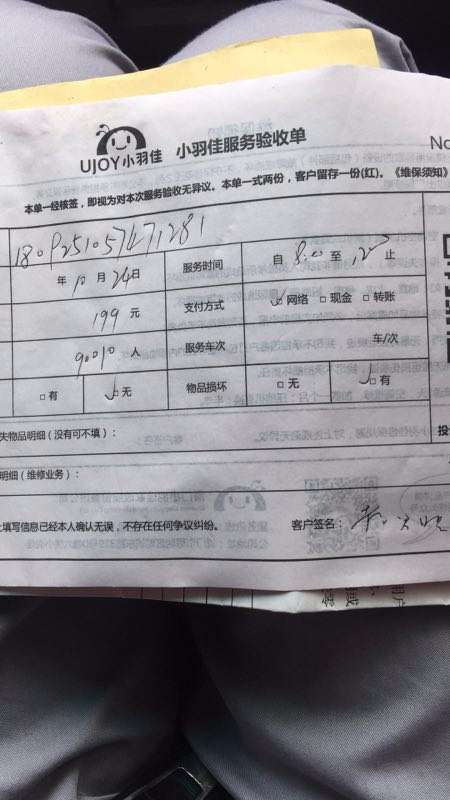 UJOY小羽佳 小羽佳服务验收单
No
本单一经核签，即视为对本次服务验收无异议。本单一式两份，客户留存一份(红)。《维保须知》
1809251057471281
年10月24日 服务时间 自8:00至12:00止
199元 支付方式 ☑网络 □现金 □转账
人 服务车次 车/次
□有 ☑无 物品损坏 □无 ☑有
失物品明细（没有可不填）：
投
明细（维修业务）：
填写信息已经本人确认无误，不存在任何争议纠纷。 客户签名：